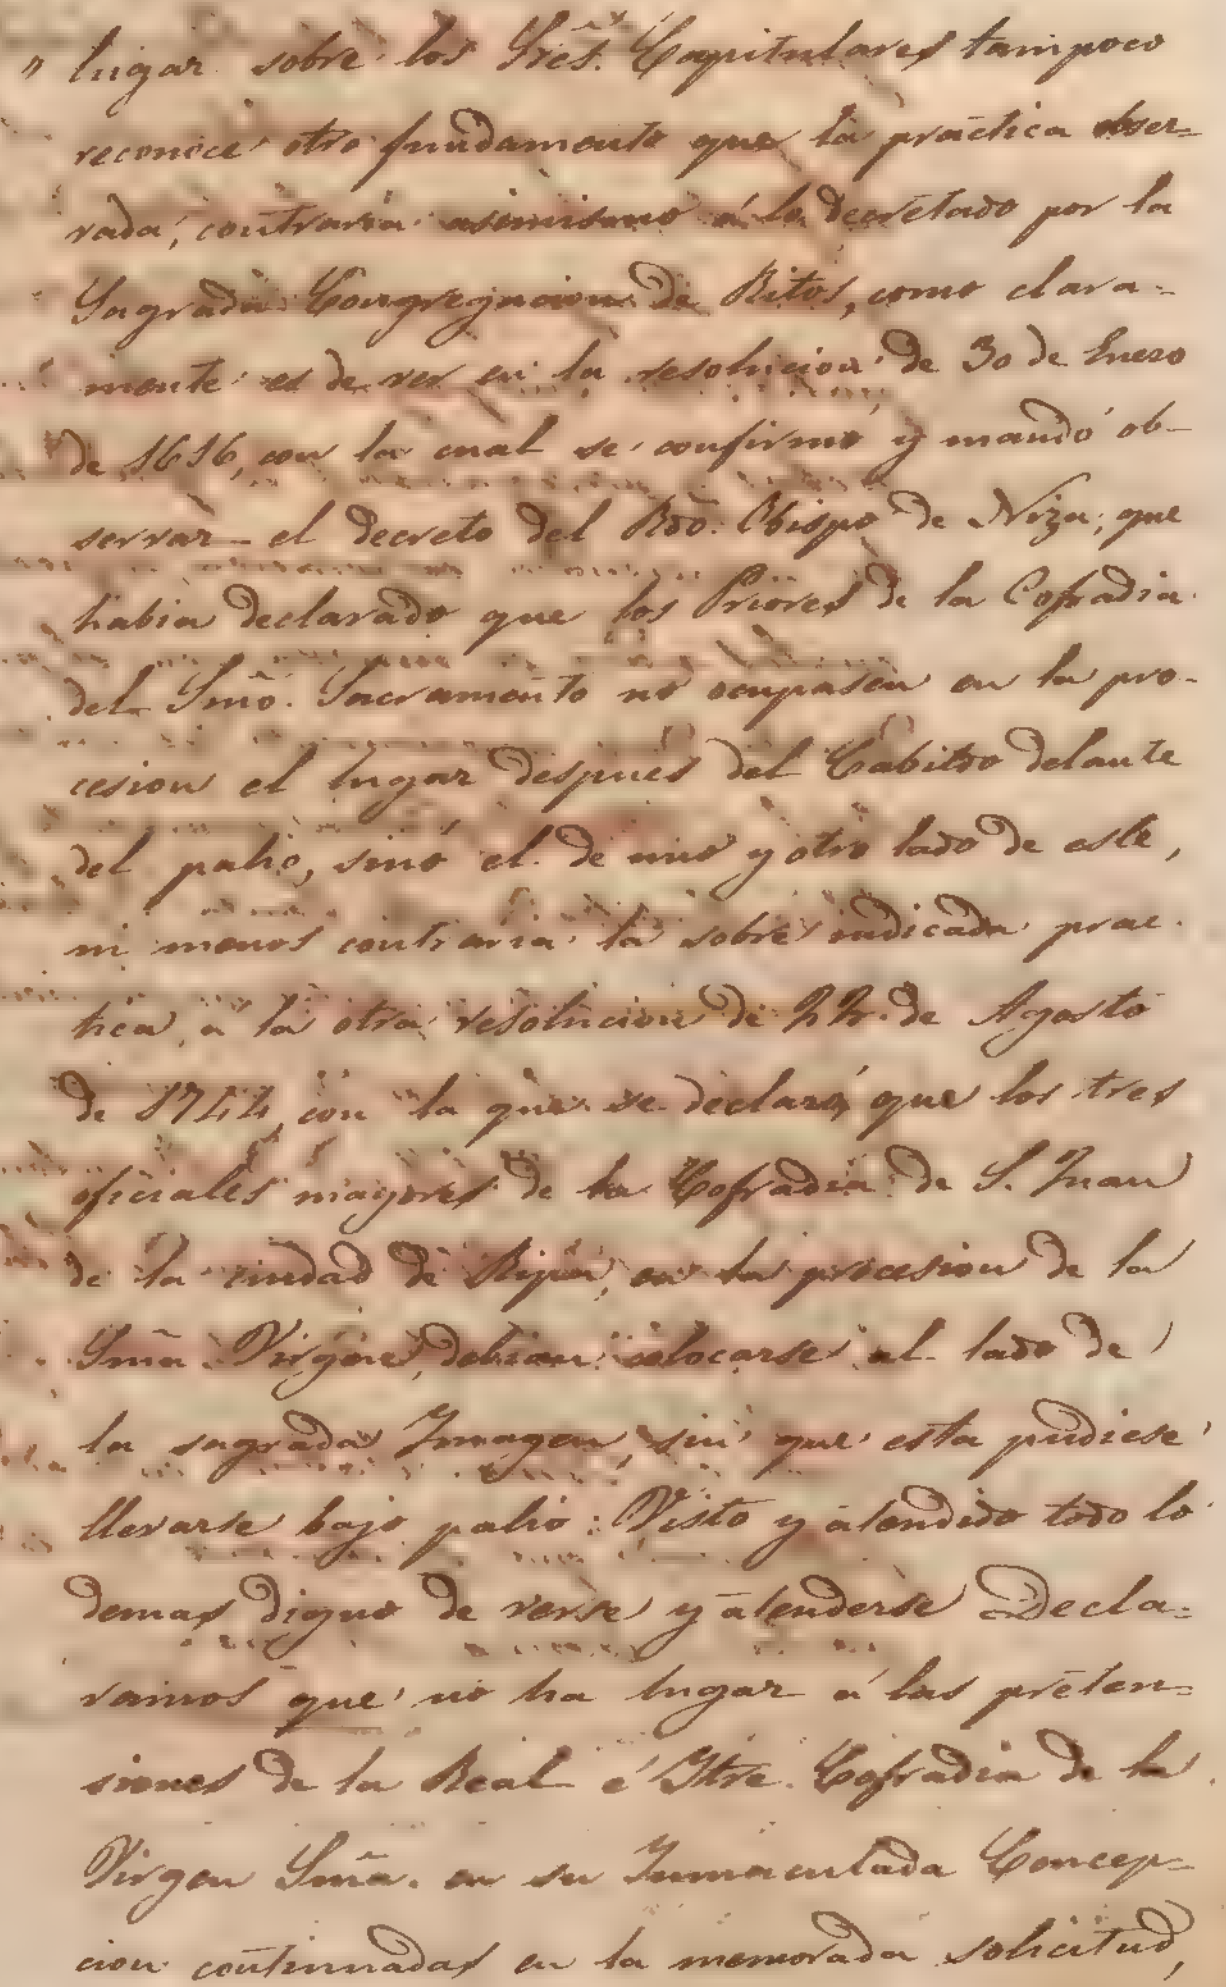 " lugar sobre los Sres. Capitulares tampoco
reconoce otro fundamento que la practica obser=
vada, contraria asimismo á lo decretado por la
Sagrada Congregacion de Ritos, como clara=
mente es de ver en la resolucion de 30 de Enero
de 1616, con la cual se confirmó y mandó ob-
servar el decreto del Rdo. Obispo de Niza, que
habia declarado que los Priores de la Cofradia
del Smo. Sacramento no ocupasen en la pro-
cesion el lugar despues del Cabildo delante
del palio, sinó el de uno y otro lado de este,
ni menos contraria la sobre indicada prac-
tica, a la otra resolucion de 22 de Agosto
de 1744, con la que se declaró, que los tres
oficiales mayores de la Cofradia de S. Juan
de la ciudad de Ripa, en la procesion de la
Sma. Virgen, debian colocarse al lado de
la sagrada Imagen, sin que esta pudiese
llevarse bajo palio: Visto y atendido todo lo
demas digno de verse y atenderse Decla=
ramos que no ha lugar á las preten=
siones de la Real é Iltre. Cofradia de la
Virgen Sma. en su Inmaculada Concep=
cion continuadas en la memorada solicitud,